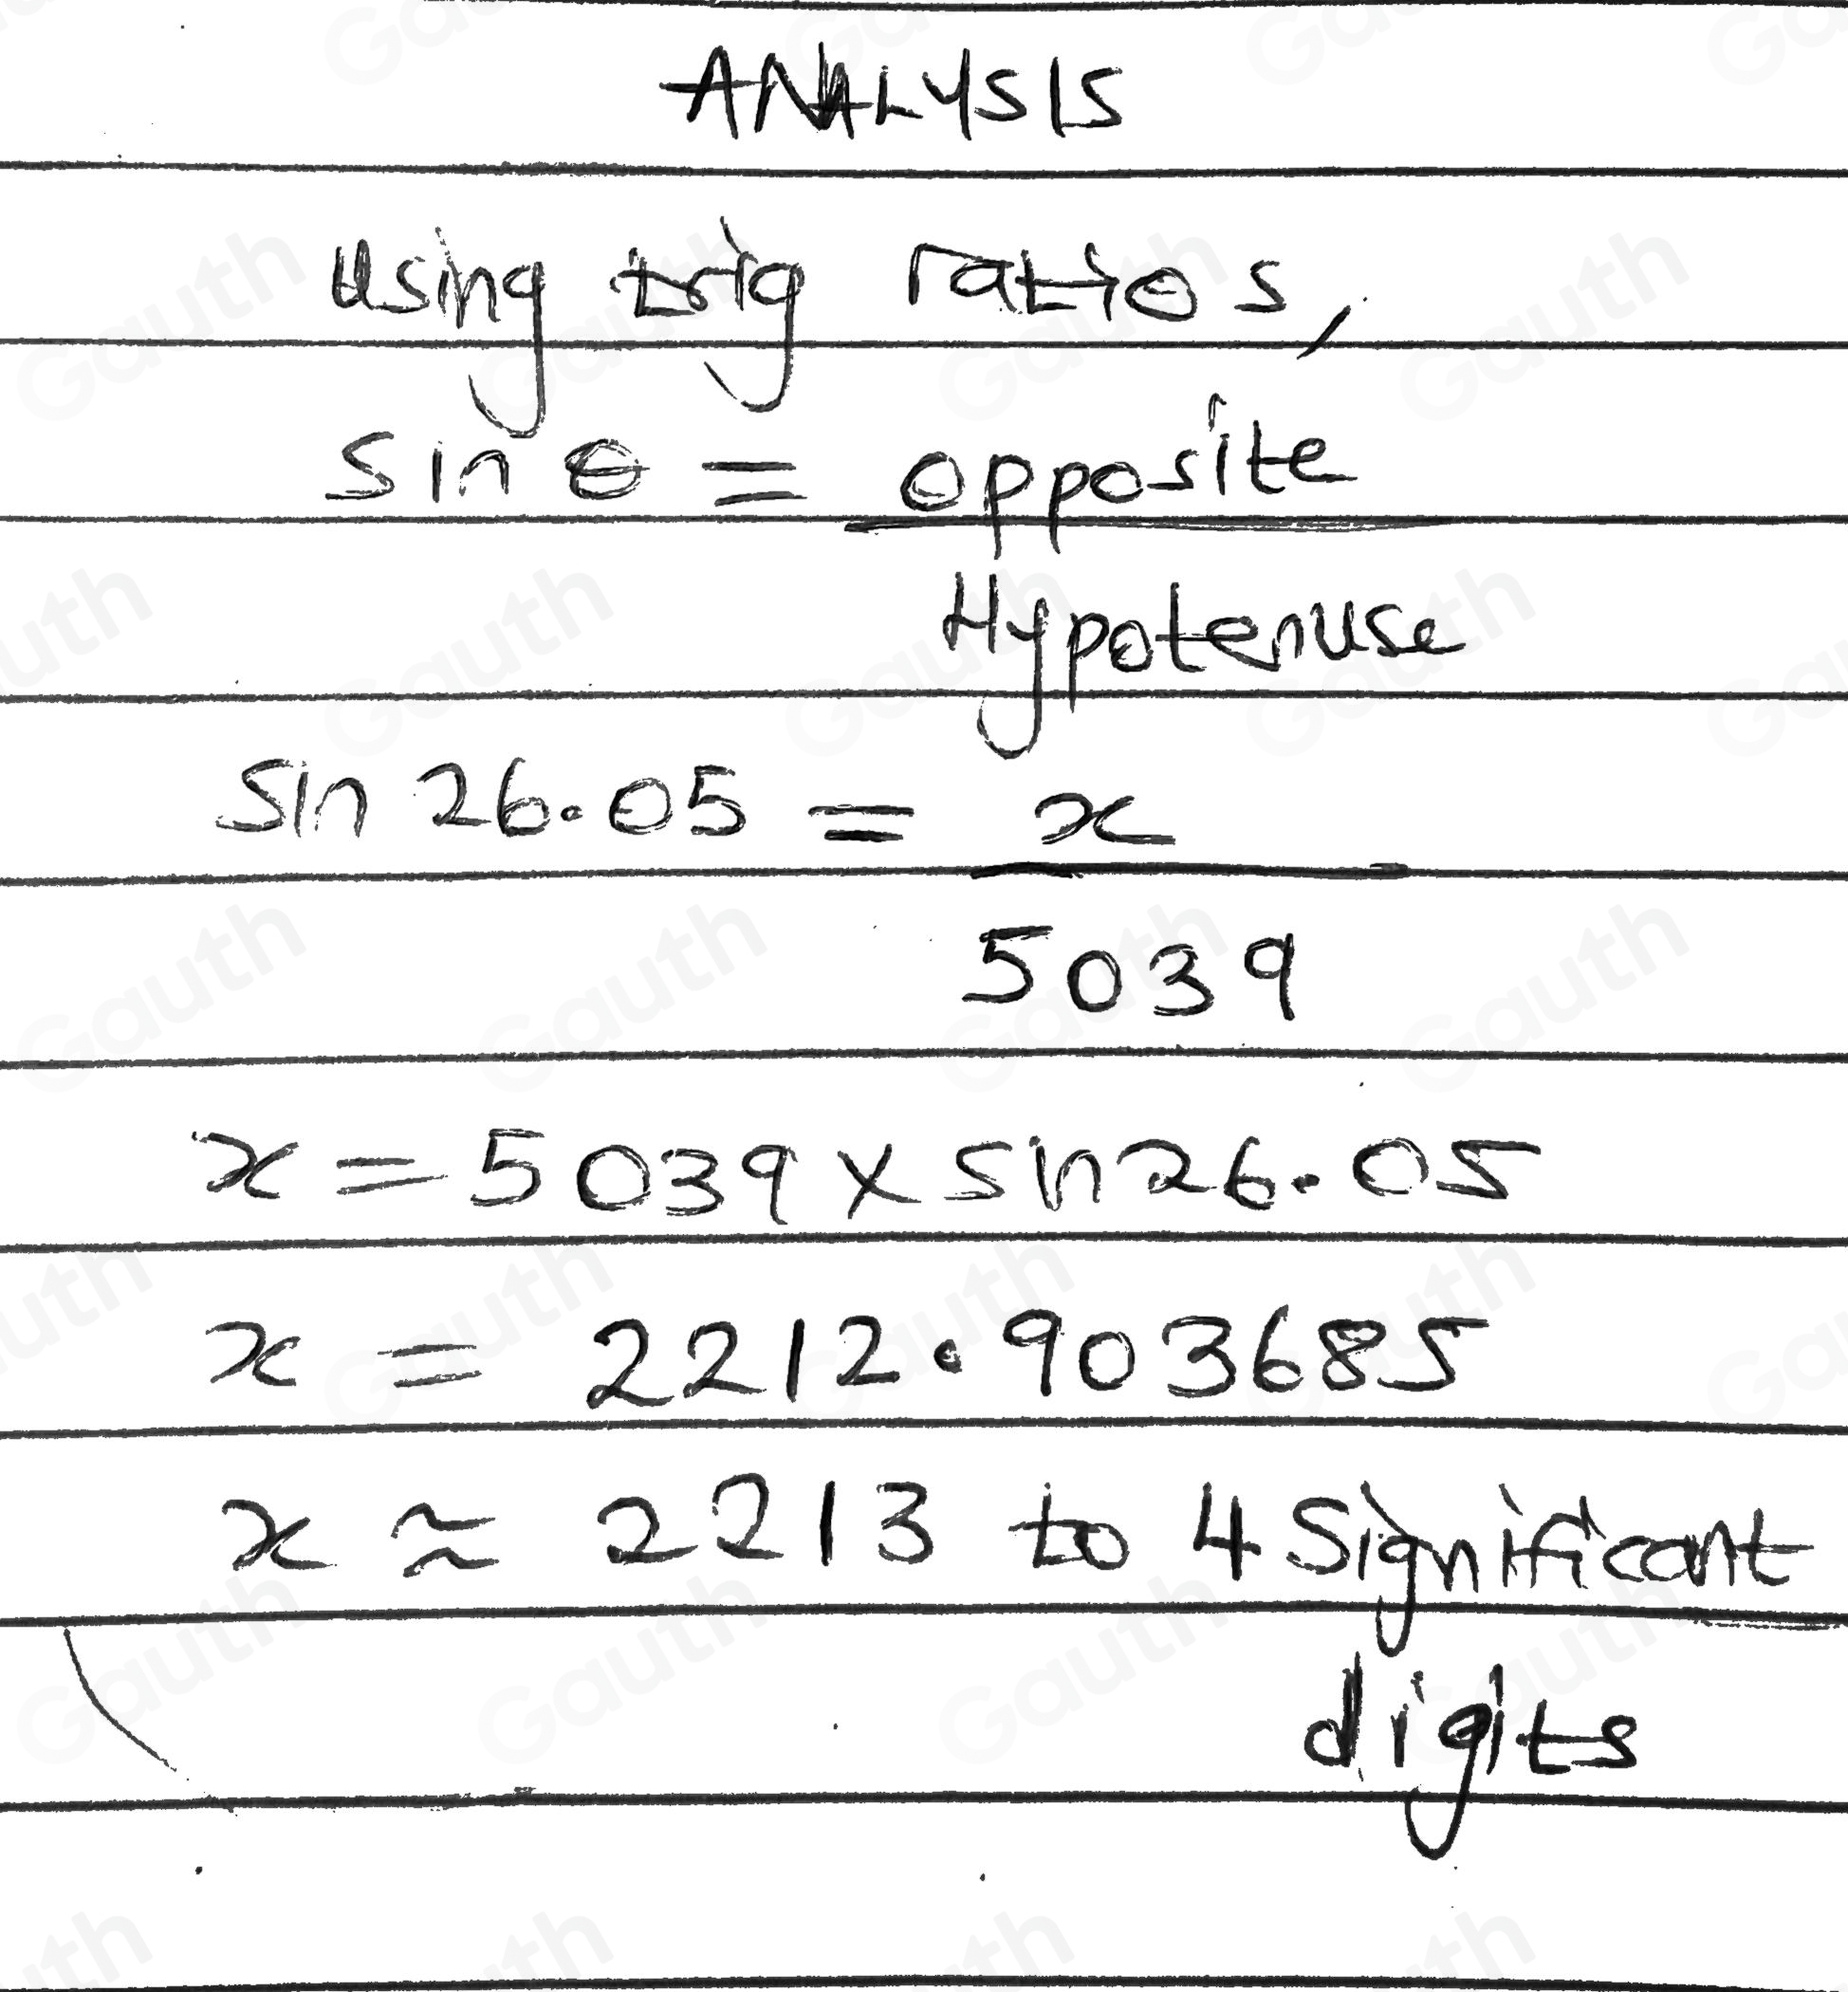 ANALYSIS
Using trig ratios,
Sin θ = opposite
Hypotenuse
Sin 26.05 = x
5039
x = 5039 × Sin 26.05
x = 2212.903685
x ≈ 2213 to 4 Significant
digits